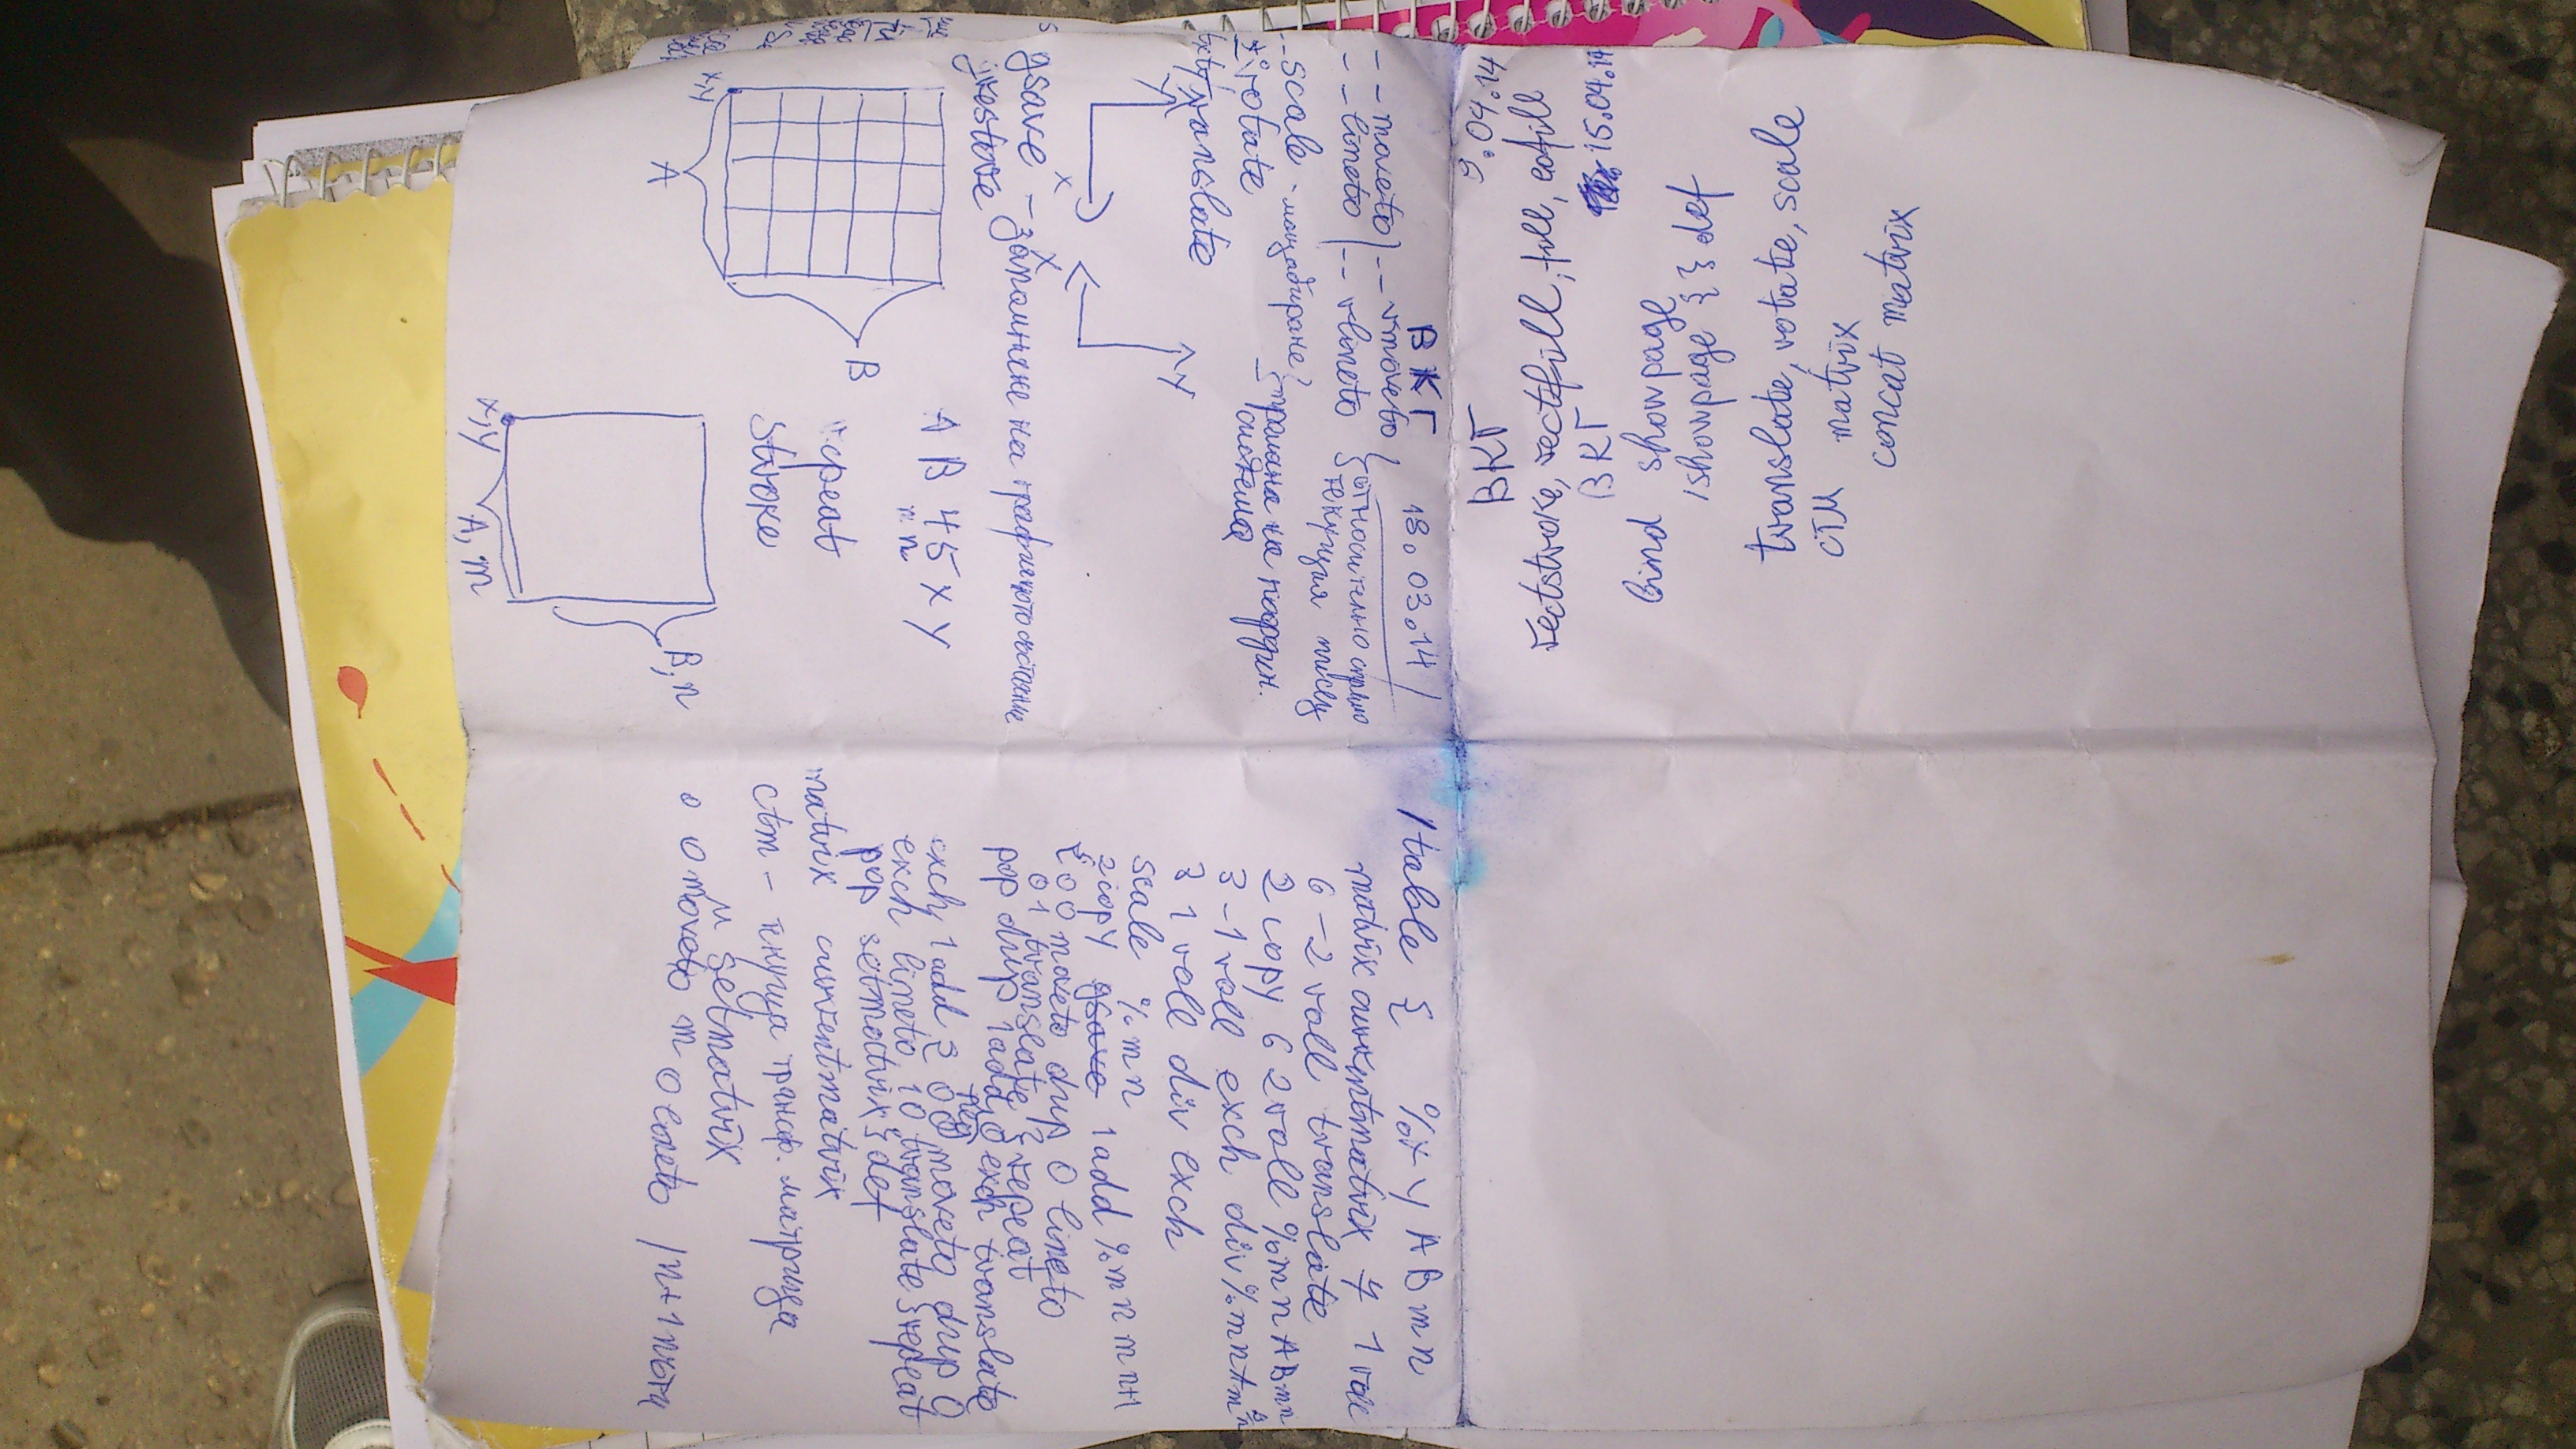 9.04.14 ВКГ
rectstroke, rectfill, fill, eofill
15.04.14 ВКГ
bind showpage
/showpage { } def
translate, rotate, scale
CTM matrix
concat matrix
ВКГ 18.03.14
-- moveto -- rmoveto относително спрямо
-- lineto -- rlineto текущия писец
-- scale - мащабиране
± rotate смяна на координ.
tx ty translate система
Y
X
X
Y
gsave - запомняне на графичното състояние
grestore
x,y
A
B
A B 4 5 x y
m n
repeat
stroke
x,y
A, m
B, n
/table { % x y A B m n
matrix currentmatrix 7 1 roll
6 -2 roll translate
2 copy 6 2 roll % m n A B m n
3 -1 roll exch div % m n
3 1 roll div exch
scale % m n
2 copy 1 add % m n m n+1
{ 0 0 moveto dup 0 lineto
0 1 translate } repeat
pop dup 1 add 0 exch translate
neg
exch 1 add { 0 0 moveto dup 0
exch lineto 1 0 translate } repeat
pop setmatrix } def
matrix currentmatrix
ctm - текуща трансф. матрица
M setmatrix
0 0 moveto m 0 lineto / n+1 пъти